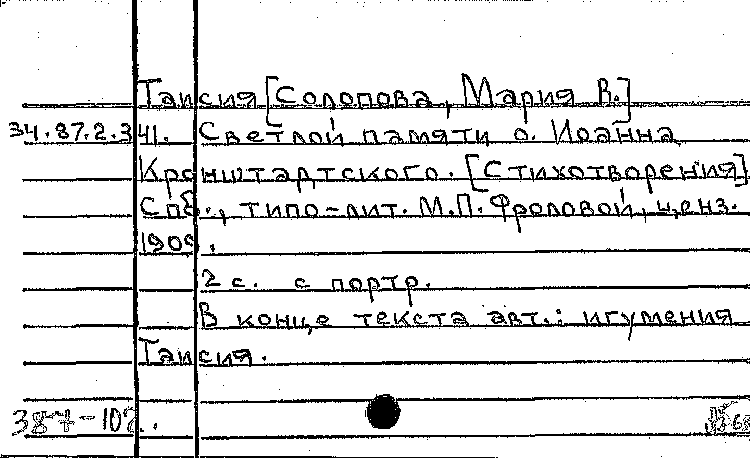 Таисия [Солопова, Мария В.]
34.87.2.341. Светлой памяти о. Иоанна
Кронштадтского. [Стихотворения]
Спб., типо-лит. М.П. Фроловой, ценз.
1909.
2 с. с портр.
В конце текста авт.: игумения
Таисия.
387-102.